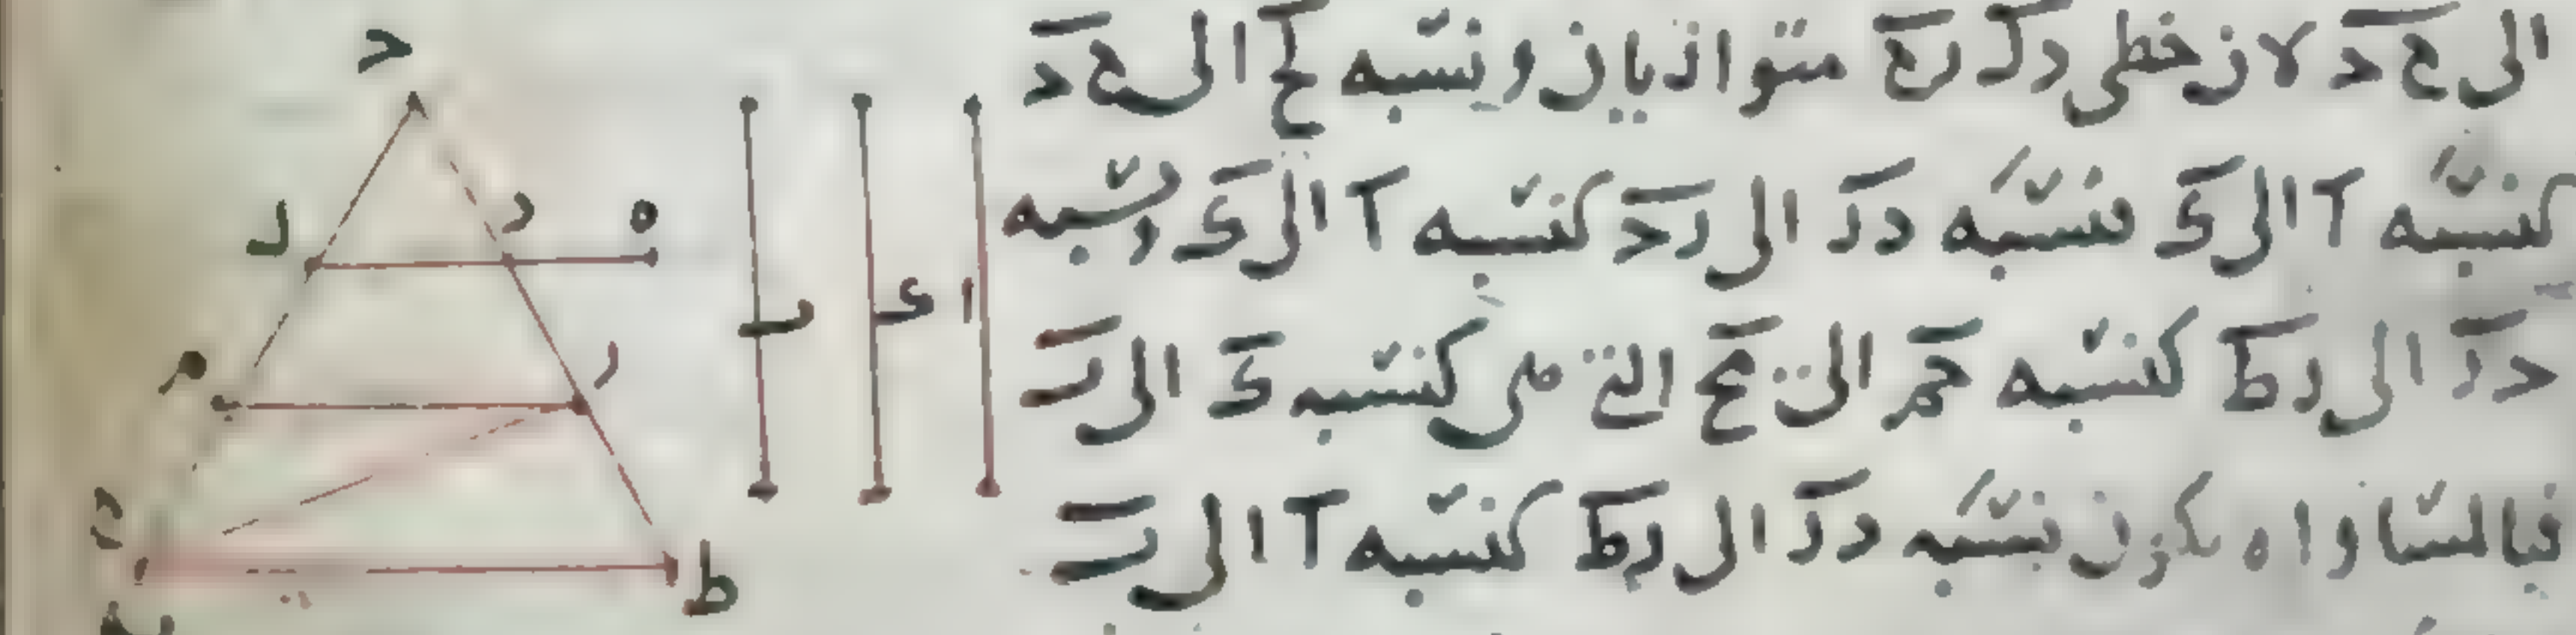 الى ح د لان خطى دك رح متوازيان ونسبه لح الى ح د
كنسبه ا الى ى فنسبه در الى رد كنسبه ا الى ى ونسبه
در الى رط كنسبه حم الى مح التى هى كنسبه ى الى ب
فبالمساواه يكون نسبه در الى رط كنسبه ا الى ب
د
ل
د
ه
م
ر
ح
ط
ا
ى
ب